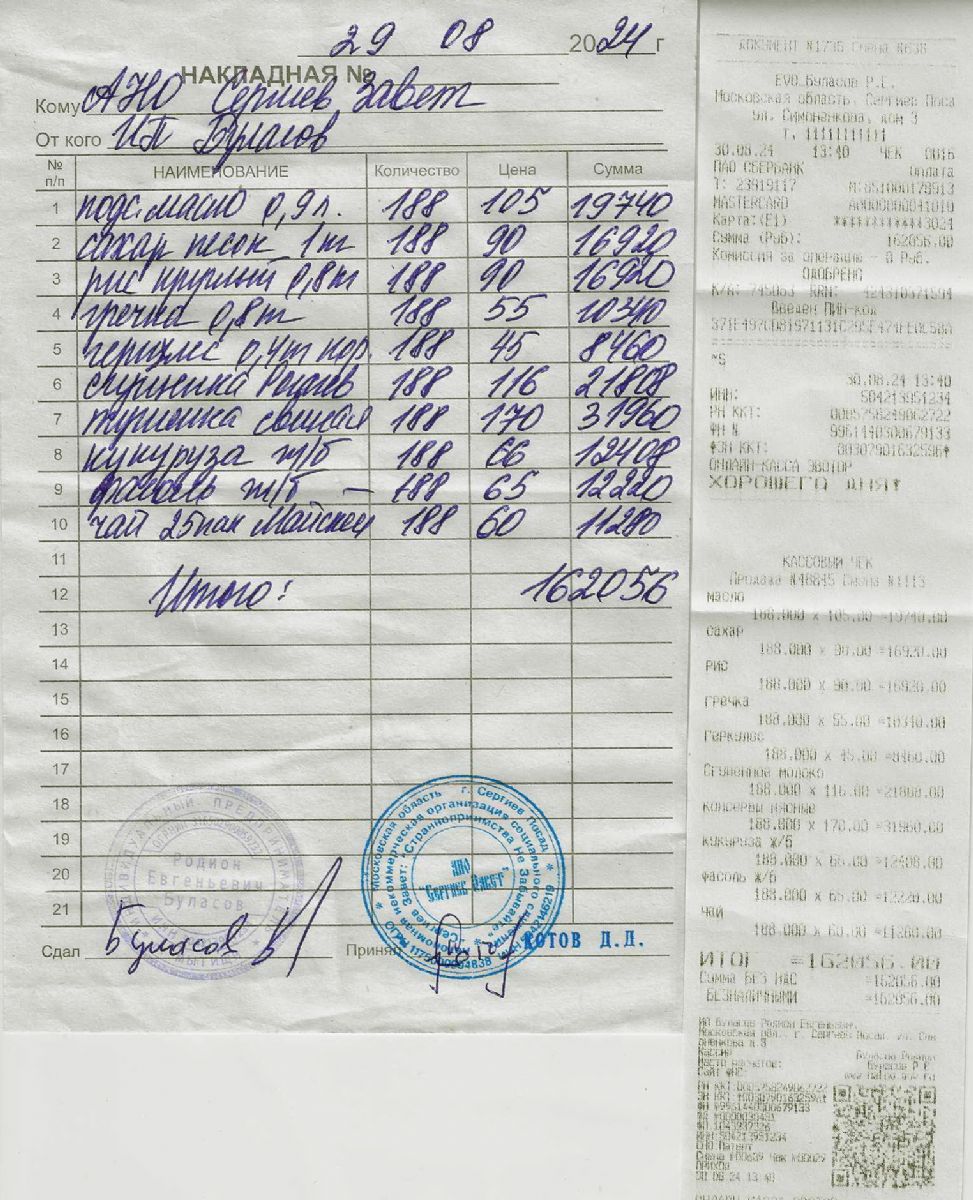 29 08 2024 г
НАКЛАДНАЯ №
Кому АНО Сергиев Завет
От кого ИП Буласов
№ п/п НАИМЕНОВАНИЕ Количество Цена Сумма
1 подс. масло 0,9 л. 188 105 19740
2 сахар песок 1 кг 188 90 16920
3 рис круглый 0,8 кг 188 90 16920
4 гречка 0,8 кг 188 55 10340
5 геркулес 0,4 кг 188 45 8460
6 сгущенка Рогачев 188 116 21808
7 тушенка 188 170 31960
8 кукуруза ж/б 188 66 12408
9 фасоль ж/б — 188 65 12220
10 чай 25 пак Майский 188 60 11280
11
12 Итого: 162056
13
14
15
16
17
18
19
20
21
Родион
Евгеньевич
Буласов
Московская область г. Сергиев Посад
АНО
"Сергиев Завет"
Сдал Буласов
Принял КОТОВ Д.Д.
ДОКУМЕНТ №1736 Смена №636
EVO_Буласов Р.Е.
Московская область, Сергиев Поса
ул. Симоненкова, дом 3
Т. 11111111111
30.08.24 13:40 ЧЕК 0016
ПАО СБЕРБАНК Оплата
Т: 23919117 М:851000179913
MASTERCARD A0000000041010
Карта:(E1) ************3024
Сумма (Руб): 162056.00
Комиссия за операцию – 0 Руб.
ОДОБРЕНО
К/А: 745063 RRN:
Введен ПИН-код
*S
30.08.24 13:40
ИНН: 504213951234
РН ККТ: 0005758249062722
ФН № 9961440300679133
ОНЛАЙН-КАССА ЭВОТОР
ХОРОШЕГО ДНЯ!
КАССОВЫЙ ЧЕК
Продажа №46845 Смена №1113
масло
188.000 x 105.00 =19740.00
сахар
188.000 x 90.00 =16920.00
рис
188.000 x 90.00 =16920.00
гречка
188.000 x 55.00 =10340.00
Геркулес
188.000 x 45.00 =8460.00
Сгущенное молоко
188.000 x 116.00 =21808.00
консервы мясные
188.000 x 170.00 =31960.00
кукуруза ж/б
188.000 x 66.00 =12408.00
фасоль ж/б
188.000 x 65.00 =12220.00
чай
188.000 x 60.00 =11280.00
ИТОГ =162056.00
Сумма БЕЗ НДС =162056.00
БЕЗНАЛИЧНЫМИ =162056.00
ИП Буласов Родион Евгеньевич,
Московская обл., г. Сергиев Посад, ул. Сим
оненкова д.3
Кассир Буласов Родион
Место расчетов: Буласов Р.Е
Сайт ФНС: www.nalog.gov.ru
ФН №9961440300679133
ИНН 504213951234
СНО Патент
ПРИХОД
30.08.24 13:40